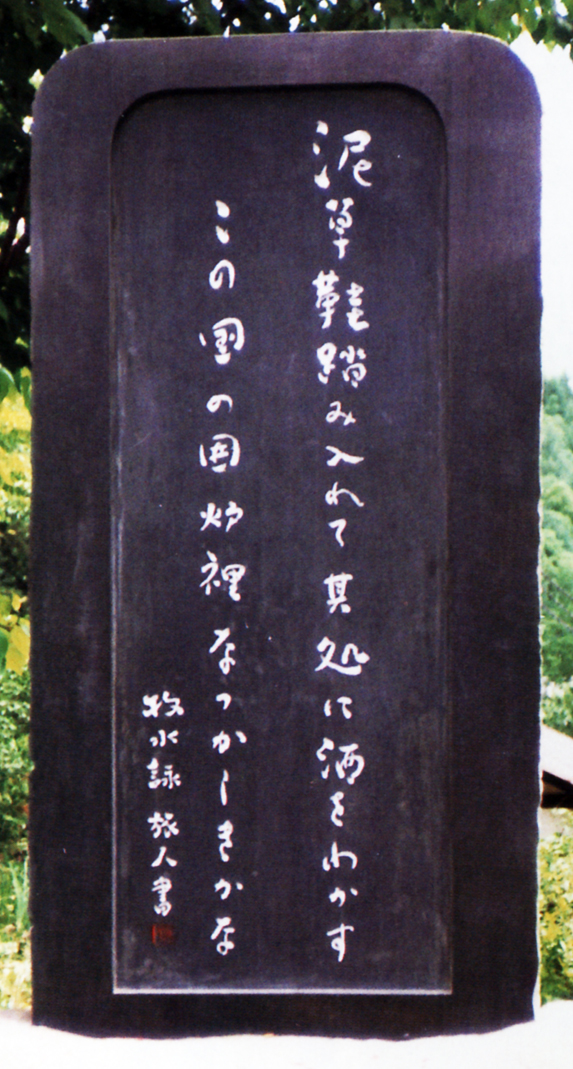 泥草鞋踏み入れて其処に酒をわかす
この国の囲炉裡なつかしきかな
牧水詠 旅人書